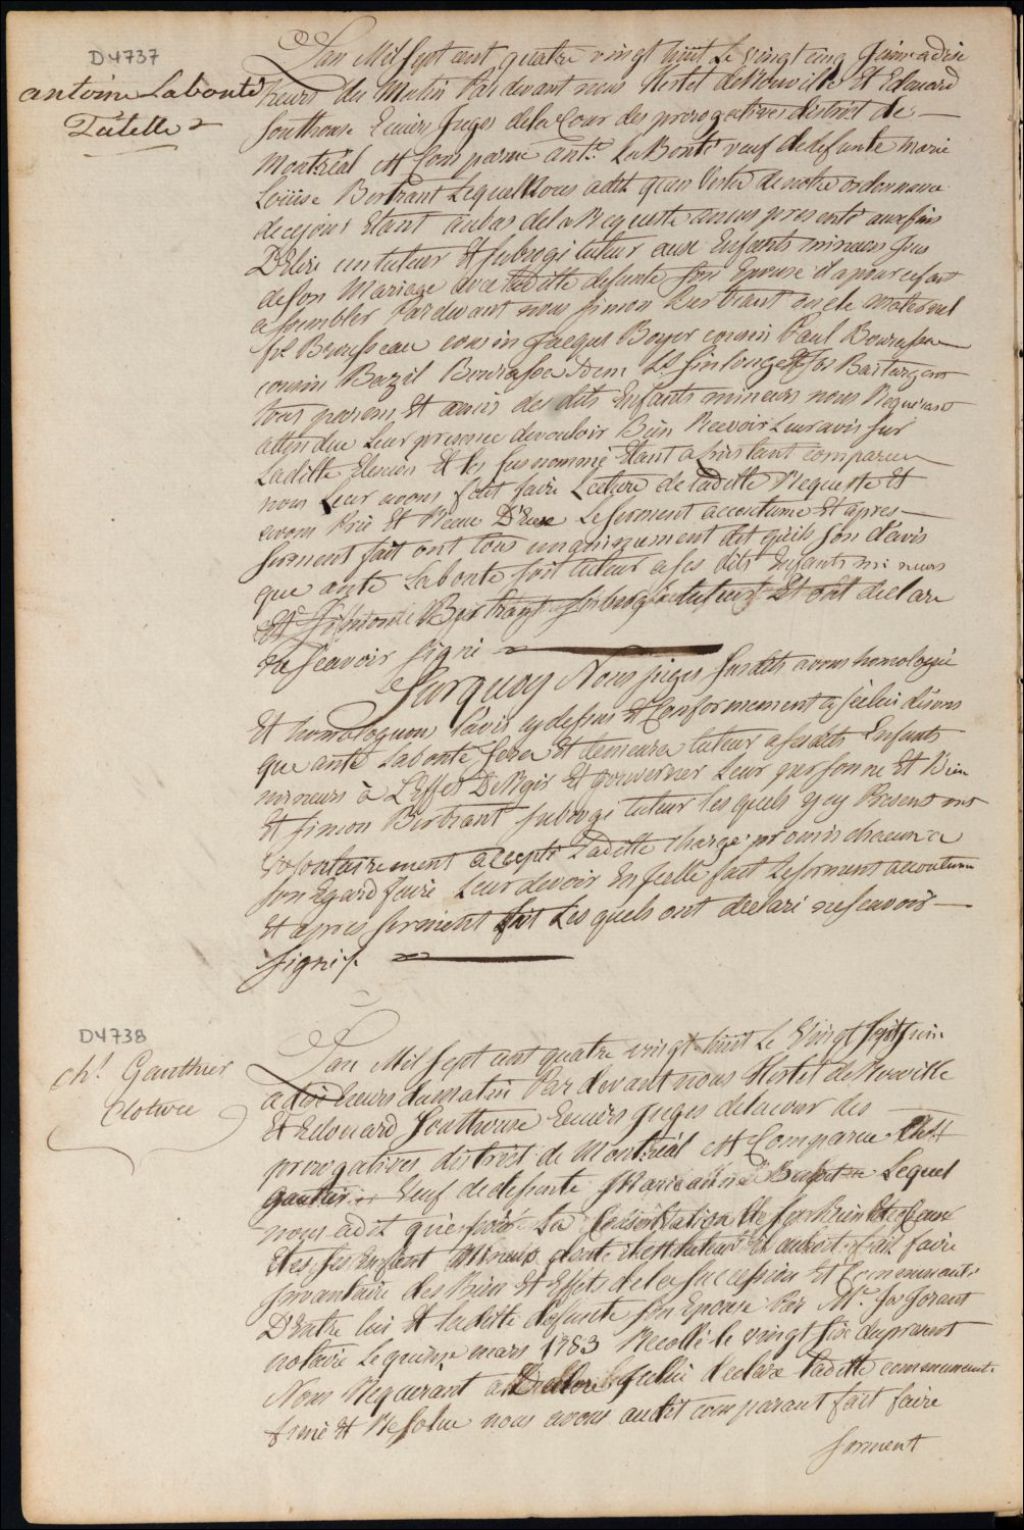 D4737
antoine Labonté
Tutelle
Lan Mil sept cent quatre vingt huit Le vingt cinq Juin a dix
heurs du Matin Par devant nous Hertel deRouville Et Edouard
Southouse Ecuiers Juges dela Cour des prerogatives district de
Montréal est Comparu antne LaBonté veuf de defunte marie
Loüise Bertrant Lequel Nous adit qu'en Vertu de notre ordonnance
decejour Etant aubas dela Requeste anous presenté aux fins
D'Elire un tuteur Et subrogé tuteur aux Enfants mineurs Jssus
deson Mariage avec Laditte defunte son Epouse il apour cefait
assembler Par devant nous simon Bertrant oncle maternel
Brousseau cousin Jacques Boyer cousin Paul Bourassa
cousin Bazil Bourassa Idem
tous parens Et amis des dits Enfants mineurs nous Requerant
attendu Leur presence devouloir Bien Recevoir Leur avis sur
Laditte Election Et les susnommé Etant a linstant comparu
nous Leur avons fait faire Lecture de Laditte Requeste Et
avons Pris Et Recu D'Eux Leserment accoutumé Et apres
serment fait ont tous unanimement dit qu'ils son d'avis
que ante Labonté soit tuteur a ses dits Enfants mineurs
Et Simon Bertrant subrogé tuteur Et ont declaré
ne scavoir signé
Surquoy Nous juges susdits avons homologué
Et homologuons Lavis cy dessus Et Conformement a jcelui disons
que ante Labonté sera Et demeura tuteur a sesdits Enfants
mineurs à L'Effet De Regir Et gouverner Leur personne Et Bien
Et simon Bertrant subrogé tuteur les quels cy Present ont
volontairement accepté Laditte charge promis chacun a
son Egard faire Leur devoir En jcelle fait Leserment accoutumé
Et apres serment fait Les quels ont declaré nescavoir
signé /.
D4738
chs. Gauthier
Cloture
Lan Mil sept cent quatre vingt huit Le Vingt sept juin
a dix heurs dumatin Par devant nous Hertel deRouville
Et Edouard Southouse Ecuiers Juges delacour des
prerogatives district de Montréal est Comparu
gautier Veuf de defunte Marieanne Lequel
nous adit que pour La Conservation de ses
Et des ses Enfant Mineurs dont il est tuteur il auroit fait faire
jnvantaire des Biens Et Effets dela succession Et Communauté
D'Entre lui Et laditte defunte son Epouse Par Me. Js. Jorant
notaire Lequinze mars 1783 Recollé le vingt six dupresent
Nous Requerant declare Laditte communauté
finié Et Resolue nous avons audit comparant fait faire
serment